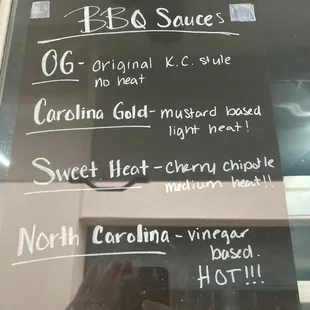 BBQ Sauces
OG- original K.C. style
no heat
Carolina Gold- mustard based
light heat!
Sweet Heat - cherry chipotle
medium heat!!
North Carolina - vinegar
based.
HOT!!!